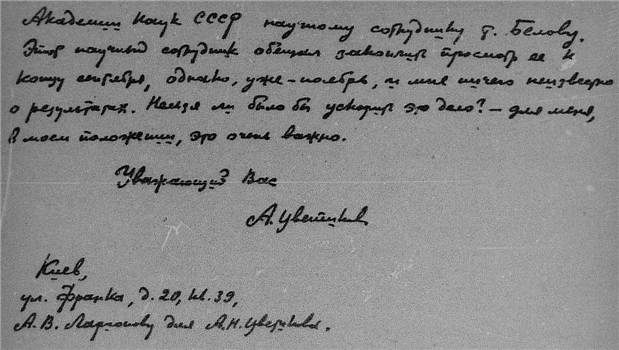 Академии Наук СССР научному сотруднику т. Белову.
Этот научный сотрудник обещал закончить просмотр ее к
концу сентября, однако, уже – ноябрь, и мне ничего неизвестно
о результатах. Нельзя ли было бы ускорить это дело? – для меня,
в моем положении, это очень важно.
Уважающий Вас
А. Цветиков
Киев,
ул. Франка, д. 20, кв. 39,
А. В. для А. Н. Цветикова.